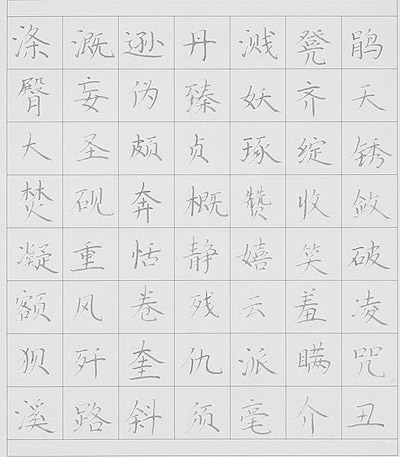 涤溉逊丹溅凳鹃
臀妄伪臻妖齐天
大圣颇贞琢绽锈
焚砚奔概赞收敛
凝重恬静嬉笑破
额风卷残云羞凌
狈歼奎仇派瞒咒
溪路斜须毫介丑